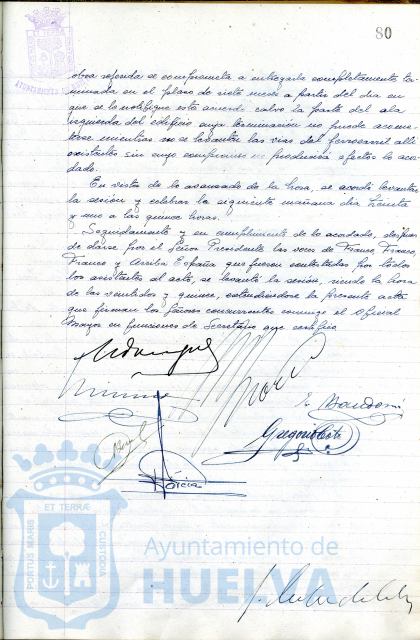 80
obra referida se comprometa a entregarla completamente ter-
minada en el plazo de siete meses a partir del día en
que se le notifique este acuerdo salvo la parte del ala
izquierda del edificio cuya terminación no puede acome-
terse mientras no se levanten las vías del ferrocarril allí
existentes sin cuyo compromiso no producirá efectos lo acor-
dado.
En vista de lo avanzado de la hora, se acordó levantar
la sesión y celebrar la siguiente mañana día treinta
y uno a las quince horas.
Seguidamente y en cumplimiento de lo acordado, después
de darse por el Señor Presidente las voces de Franco, Franco,
Franco y Arriba España que fueron contestadas por todos
los asistentes al acto, se levantó la sesión, siendo la hora
de las veintidós y quince, extendiéndose la presente acta
que firman los Señores concurrentes conmigo el Oficial
Mayor en funciones de Secretario que certifico
García
ET TERRÆ
PORTUS MARIS
CUSTODIA
Ayuntamiento de
HUELVA